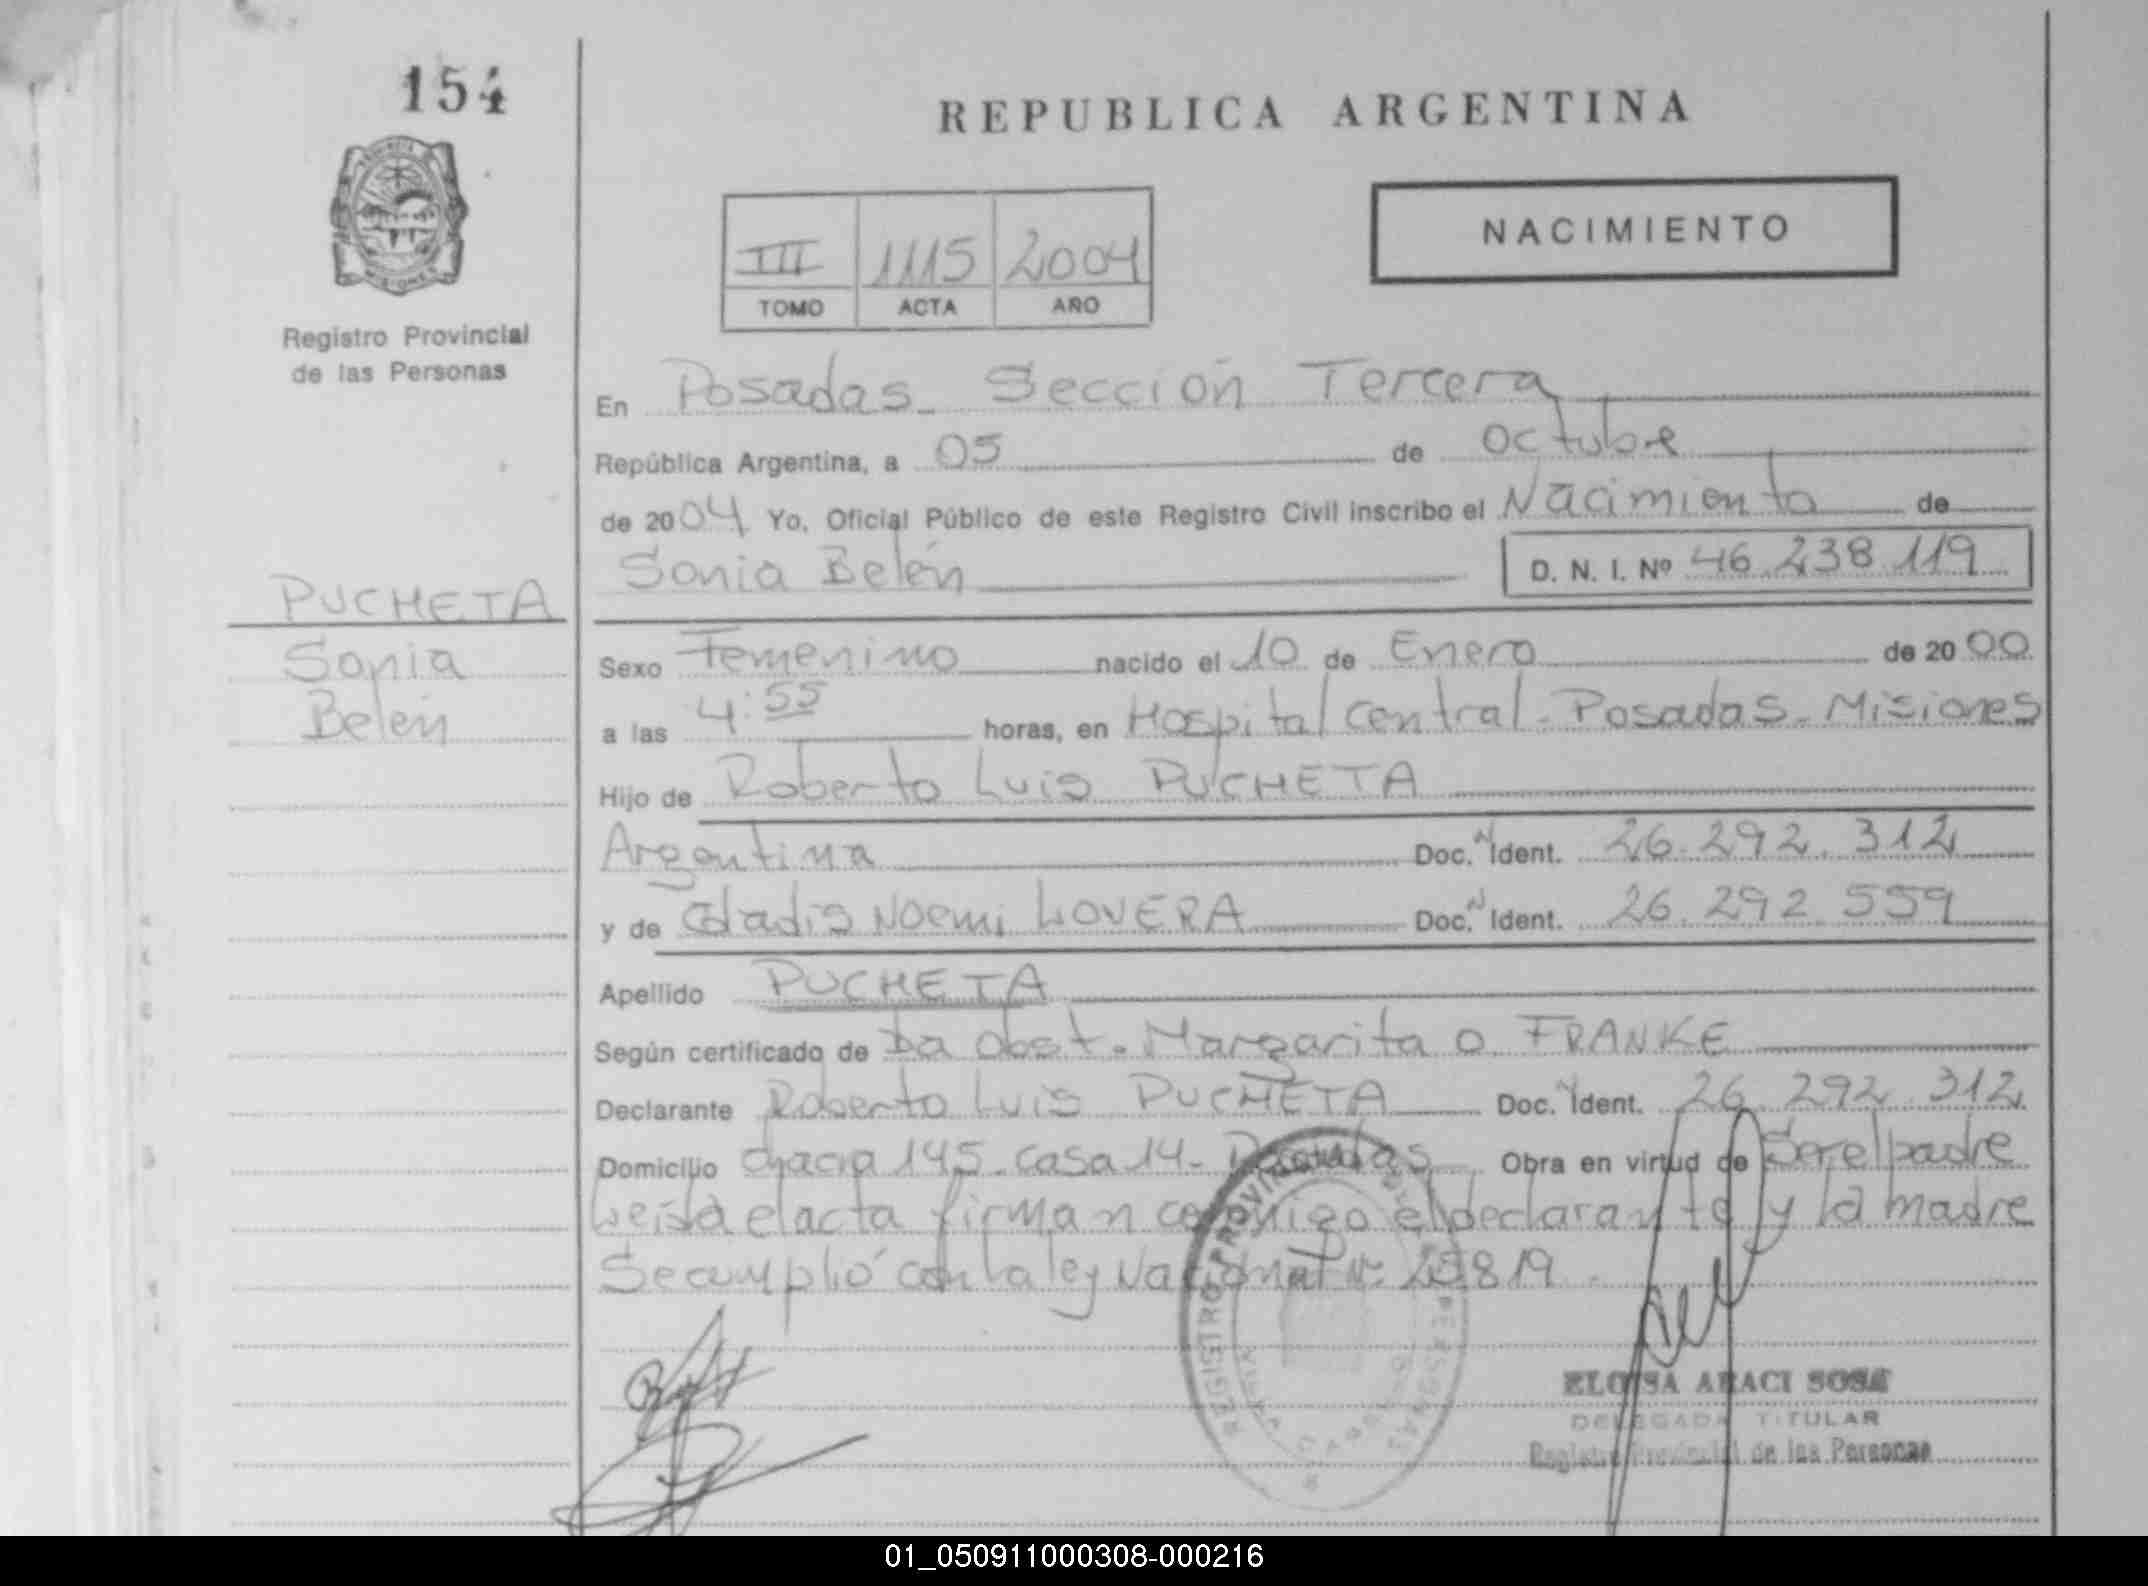 154
REPUBLICA ARGENTINA
NACIMIENTO
III 1115 2004
TOMO ACTA AÑO
Registro Provincial
de las Personas
En Posadas - Sección Tercera
República Argentina, a 05 de Octubre
de 2004 Yo, Oficial Público de este Registro Civil inscribo el Nacimiento de
Sonia Belén D. N. I. Nº 46.238.119
PUCHETA
Sonia
Belén
Sexo Femenino nacido el 10 de Enero de 2000
a las 4:55 horas, en Hospital Central - Posadas - Misiones
Hijo de Roberto Luis PUCHETA
Argentina Doc. N Ident. 26.292.312
y de Gladis Noemi LOVERA Doc. N Ident. 26.292.559
Apellido PUCHETA
Según certificado de La Obst. Margarita O. FRANKE
Declarante Roberto Luis PUCHETA Doc. N Ident. 26.292.312
Domicilio chacra 145 - casa 14 - Posadas Obra en virtud de Ser el padre
Leída el acta firman conmigo el declarante y la madre
Se cumplió con la ley Nacional Nº 25819.
REGISTRO PROVINCIAL PERSONAS
ELOISA ARACI SOSA
DELEGADA TITULAR
Registro Provincial de las Personas
01_050911000308-000216